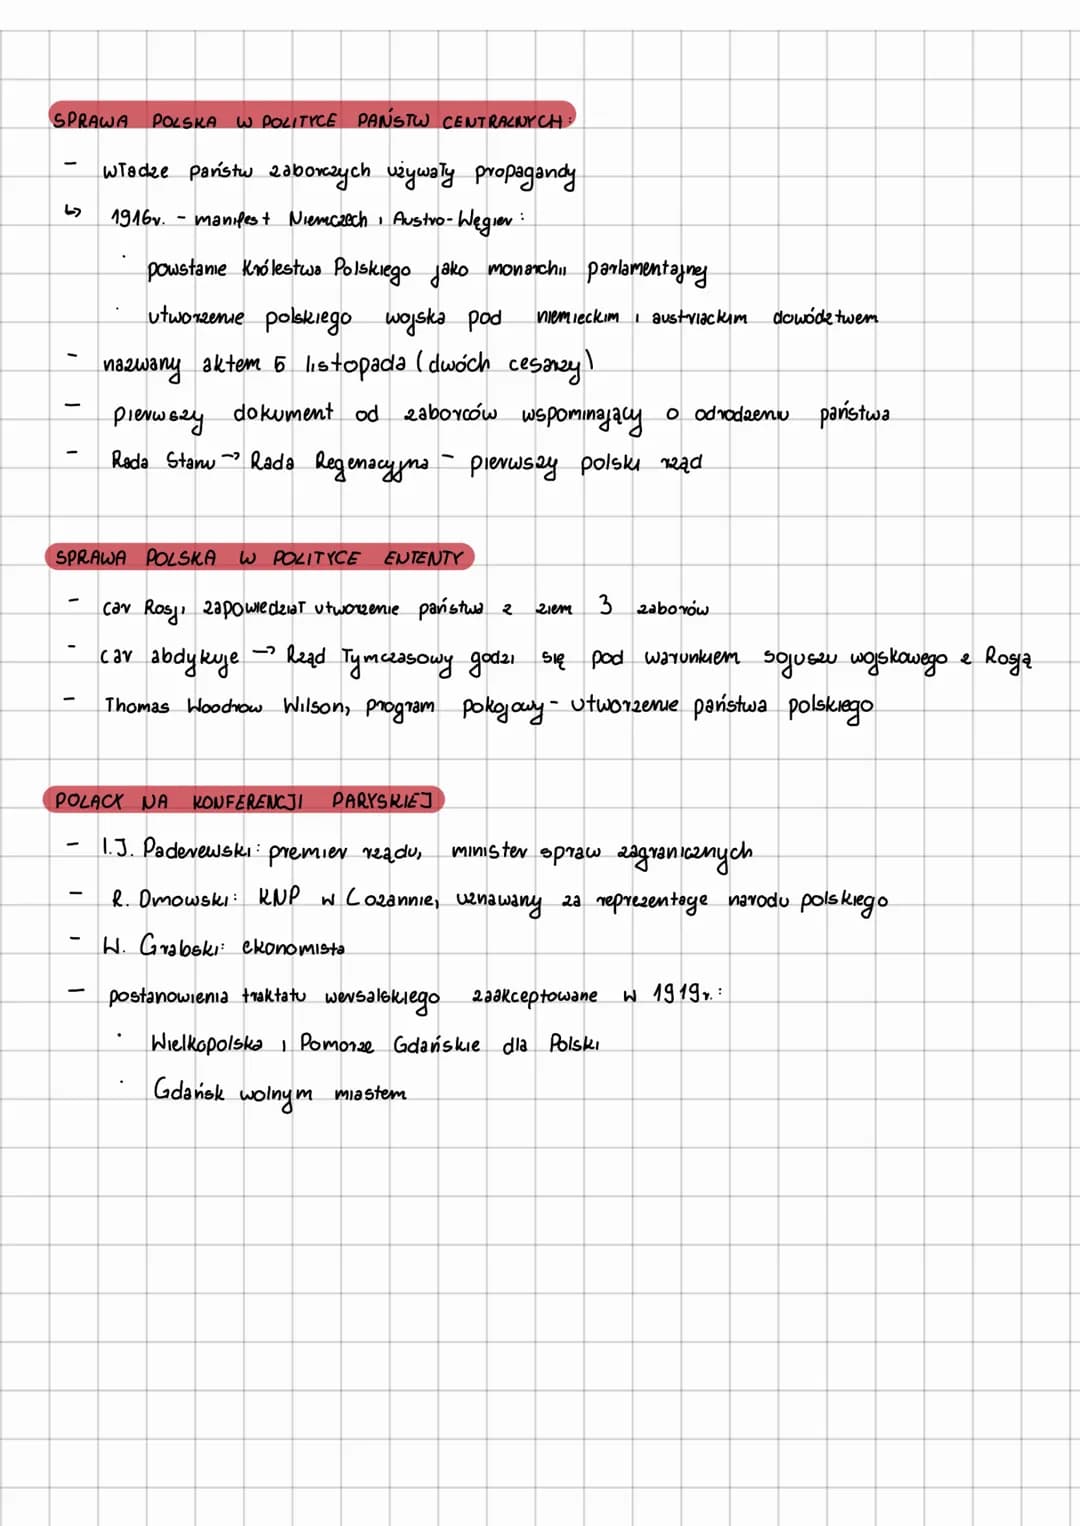 SPRAWA POLSKA W POLITYCE PAŃSTW CENTRALNYCH:
- władze państw zaborczych używały propagandy
↳ 1916r. - manifest Niemczech i Austro-Węgier:
· powstanie Królestwa Polskiego jako monarchii parlamentajnej
· utworzenie polskiego wojska pod niemieckim i austriackim dowództwem
- nazwany aktem 5 listopada (dwóch cesarzy)
- pierwszy dokument od zaborców wspominający o odrodzeniu państwa
- Rada Stanu → Rada Regenacyjna - pierwszy polski rząd
SPRAWA POLSKA W POLITYCE ENTENTY
- car Rosji zapowiedział utworzenie państwa z ziem 3 zaborów
- car abdykuje → Rząd Tymczasowy godzi się pod warunkiem sojuszu wojskowego z Rosją
- Thomas Woodrow Wilson, program pokojowy - utworzenie państwa polskiego
POLACY NA KONFERENCJI PARYSKIEJ
- I.J. Paderewski: premier rządu, minister spraw zagranicznych
- R. Dmowski: KNP w Lozannie, uznawany za reprezentage narodu polskiego
- W. Grabski: ekonomista
- postanowienia traktatu wersalskiego zaakceptowane w 1919r.:
· Wielkopolska i Pomorze Gdańskie dla Polski
· Gdańsk wolnym miastem